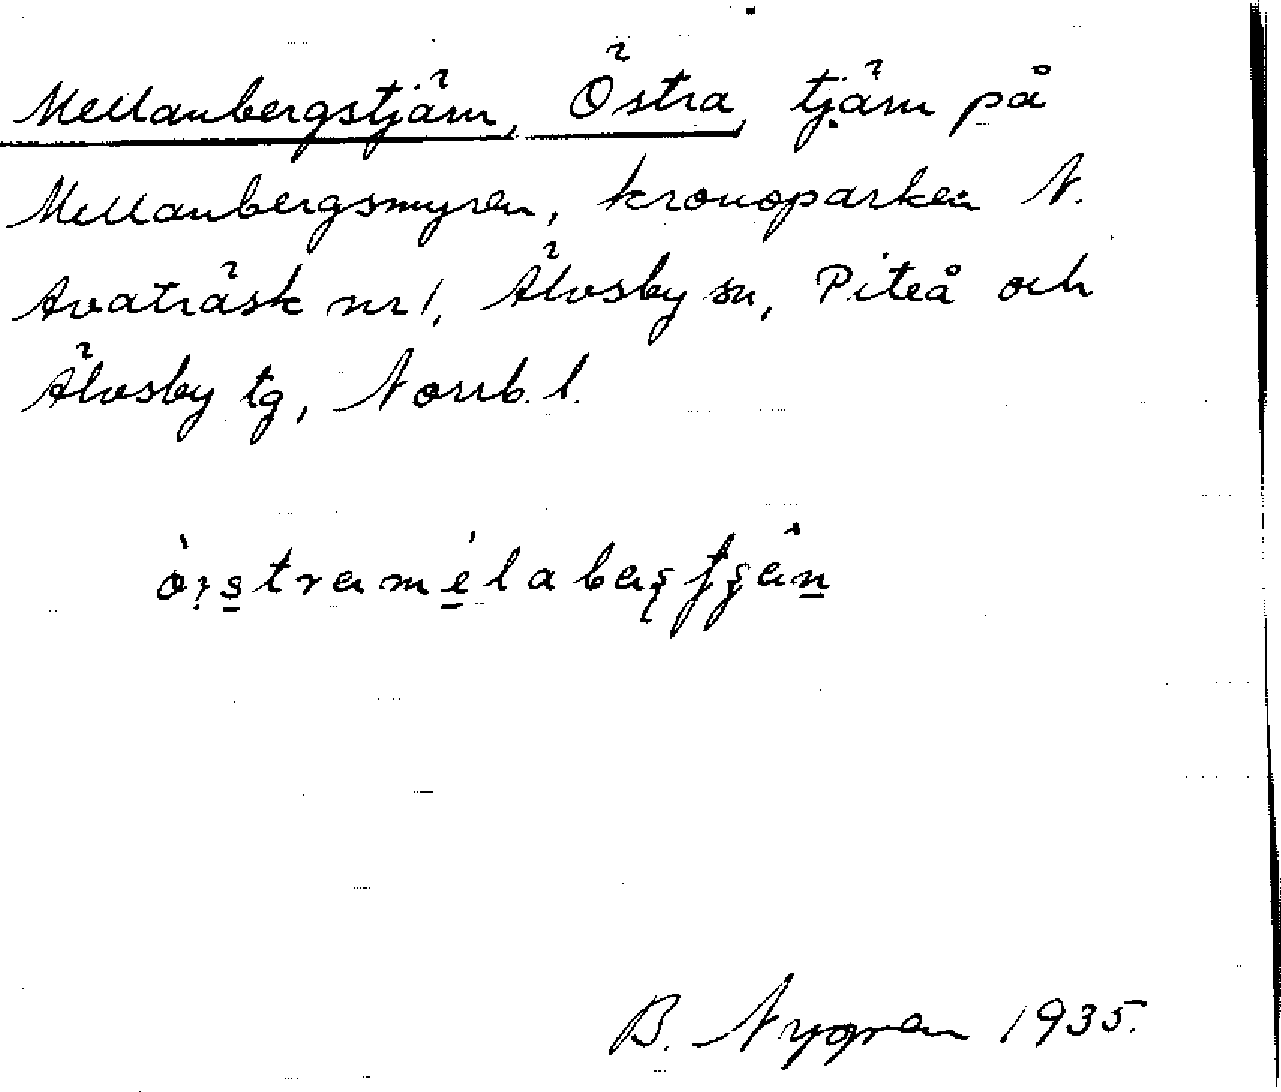 Mellanbergstjärn, Östra, tjärn på
Mellanbergsmyren, kronoparken N.
Avaträsk nr 1, Älvsby sn, Piteå och
Älvsby tg, Norrb. l.
B. Nygren 1935.